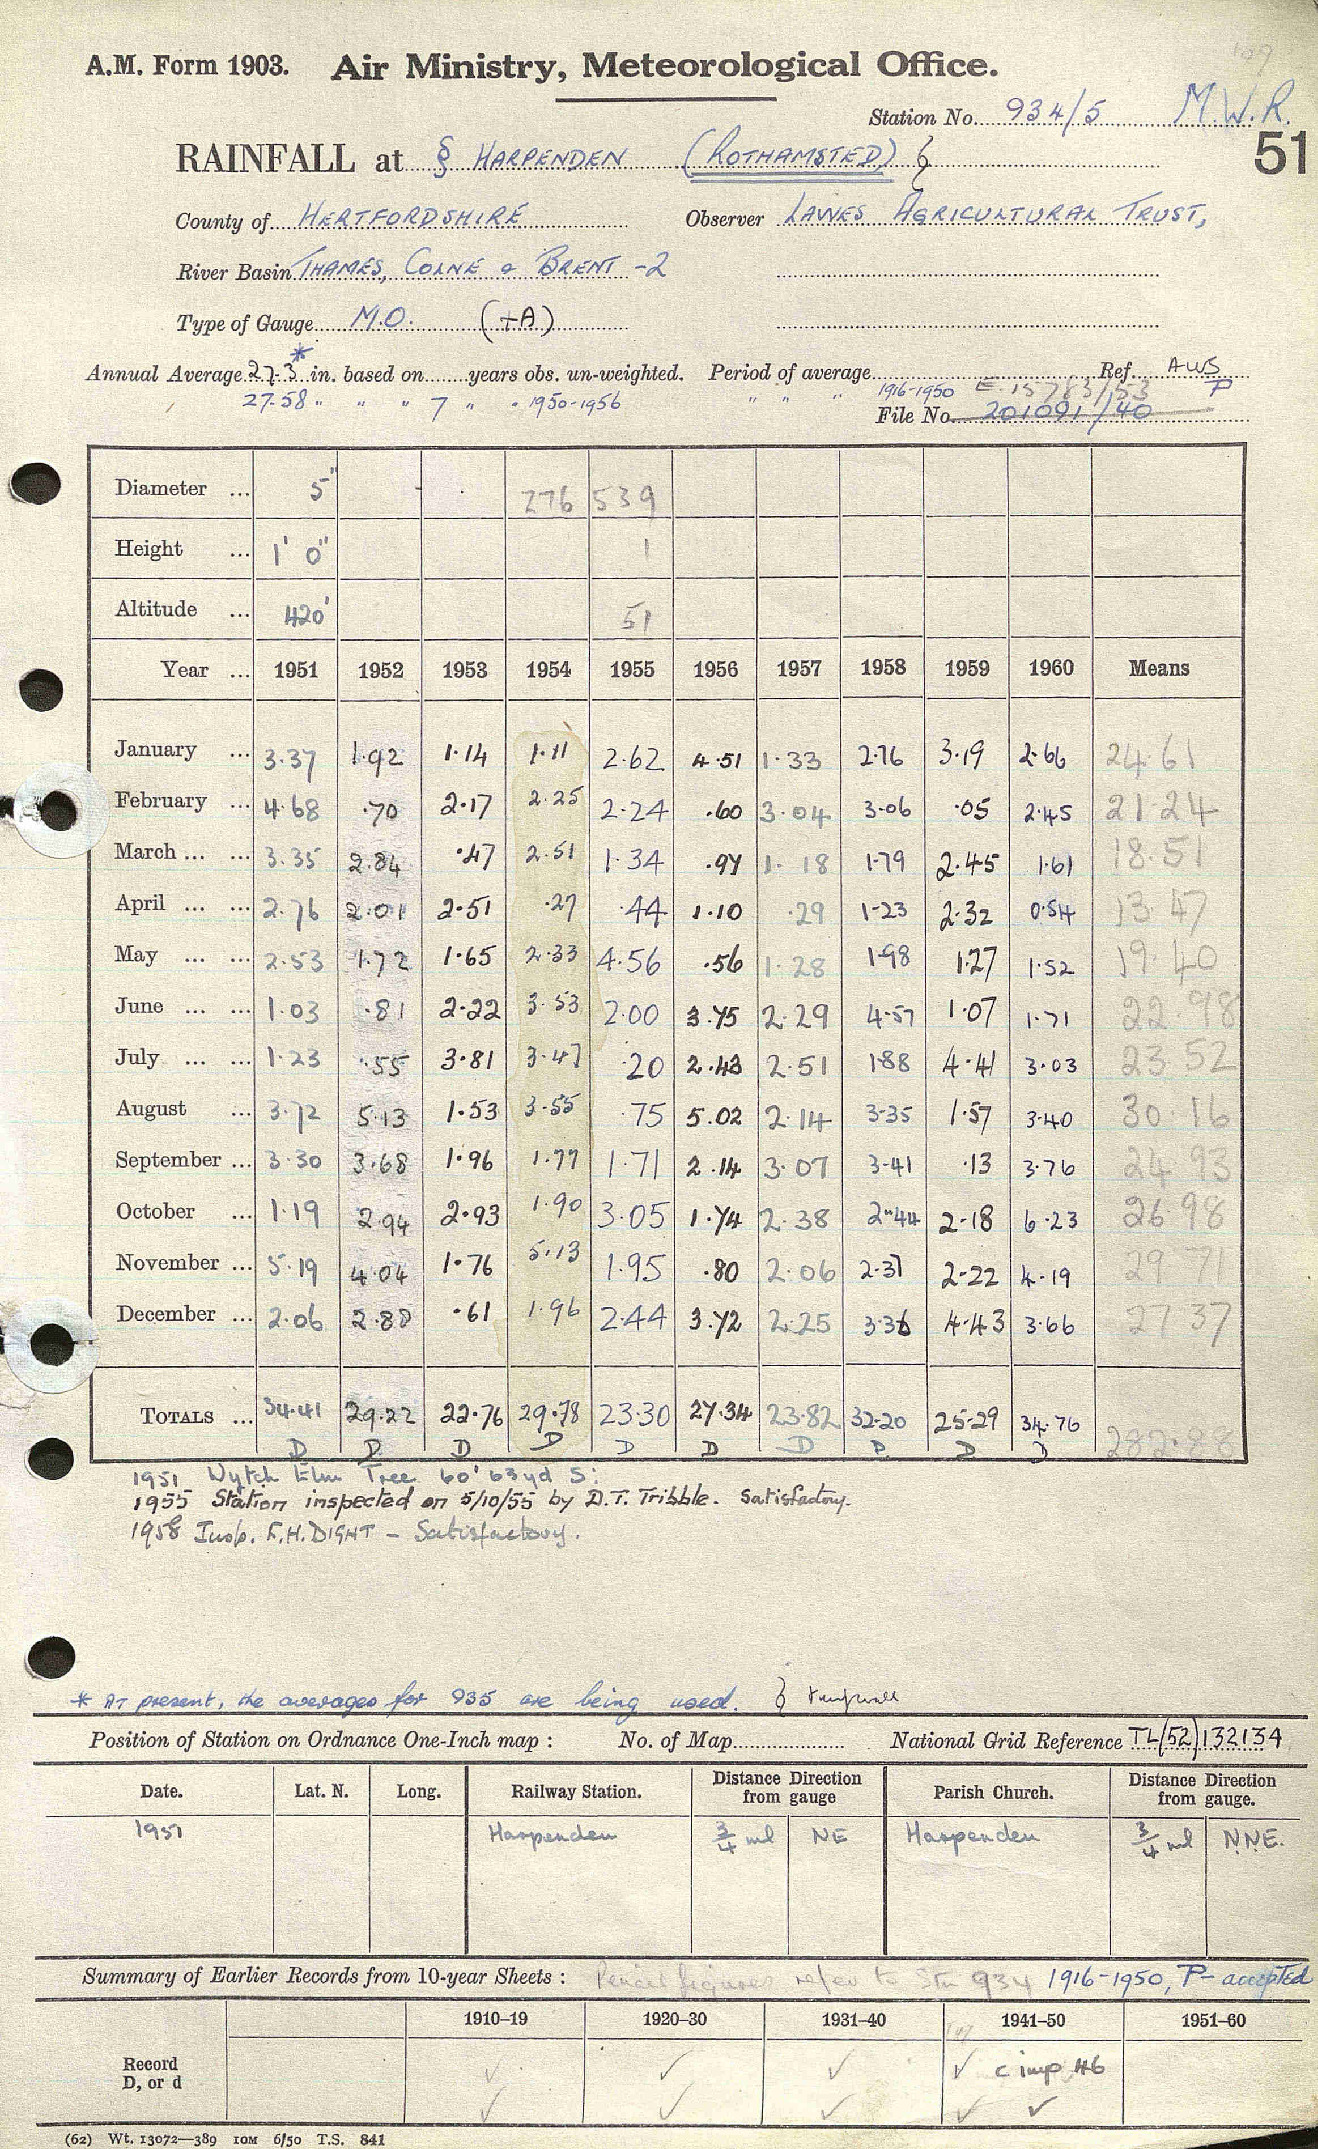 A.M. Form 1903. Air Ministry, Meteorological Office.
Station No. 934/5 M.W.R.
51
RAINFALL at § HARPENDEN (ROTHAMSTED)
County of HERTFORDSHIRE Observer LAWES AGRICULTURAL TRUST,
River Basin THAMES, COLNE & BRENT -2
Type of Gauge M.O. (+A)
Annual Average 27.3* in. based on years obs. un-weighted. Period of average Ref. AWS
27.58 " " " 7 " " 1950-1956 " " " 1916-1950 E.15783/53 P
File No. 201091/40
Diameter ... 5" 276 539
Height ... 1' 0" 1
Altitude ... 420' 51
Year ... 1951 1952 1953 1954 1955 1956 1957 1958 1959 1960 Means
January ... 3.37 1.92 1.14 1.11 2.62 4.51 1.33 2.76 3.19 2.66 24.61
February ... 4.68 .70 2.17 2.25 2.24 .60 3.04 3.06 .05 2.45 21.24
March ... ... 3.35 2.84 .47 2.51 1.34 .97 1.18 1.79 2.45 1.61 18.51
April ... ... 2.76 2.01 2.51 .27 .44 1.10 .29 1.23 2.32 0.54 13.47
May ... ... 2.53 1.72 1.65 2.33 4.56 .56 1.28 1.98 1.27 1.52 19.40
June ... ... 1.03 .81 2.22 3.53 2.00 3.75 2.29 4.57 1.07 1.71 22.98
July ... ... 1.23 .55 3.81 3.47 .20 2.43 2.51 1.88 4.41 3.03 23.52
August ... 3.72 5.13 1.53 3.55 .75 5.02 2.14 3.35 1.57 3.40 30.16
September ... 3.30 3.68 1.96 1.77 1.71 2.14 3.07 3.41 .13 3.76 24.93
October ... 1.19 2.94 2.93 1.90 3.05 1.74 2.38 2.44 2.18 6.23 26.98
November ... 5.19 4.04 1.76 5.13 1.95 .80 2.06 2.37 2.22 4.19 29.71
December ... 2.06 2.88 .61 1.96 2.44 3.72 2.25 3.36 4.43 3.66 27.37
TOTALS ... 34.41 29.22 22.76 29.78 23.30 27.34 23.82 32.20 25.29 34.76 282.88
D D D D D D D P D D
1951 Wytch Elm Tree 60' 63yd S:
1955 Station inspected on 5/10/55 by D.T. Tribble. Satisfactory.
1958 Insp. F.H. DIGHT - Satisfactory.
* At present, the averages for 935 are being used.
Position of Station on Ordnance One-Inch map : No. of Map National Grid Reference TL(52)132134
Date. Lat. N. Long. Railway Station. Distance Direction from gauge Parish Church. Distance Direction from gauge.
1951 Harpenden 3/4 ml NE Harpenden 3/4 ml N.N.E.
Summary of Earlier Records from 10-year Sheets : Pencil figures refer to Stn 934 1916-1950, P- accepted
1910–19 1920–30 1931–40 1941–50 1951–60
Record ✓ ✓ ✓ ✓ c imp 46
D, or d ✓ ✓ ✓ ✓ ✓
(62) Wt. 13072—389 10M 6/50 T.S. 841